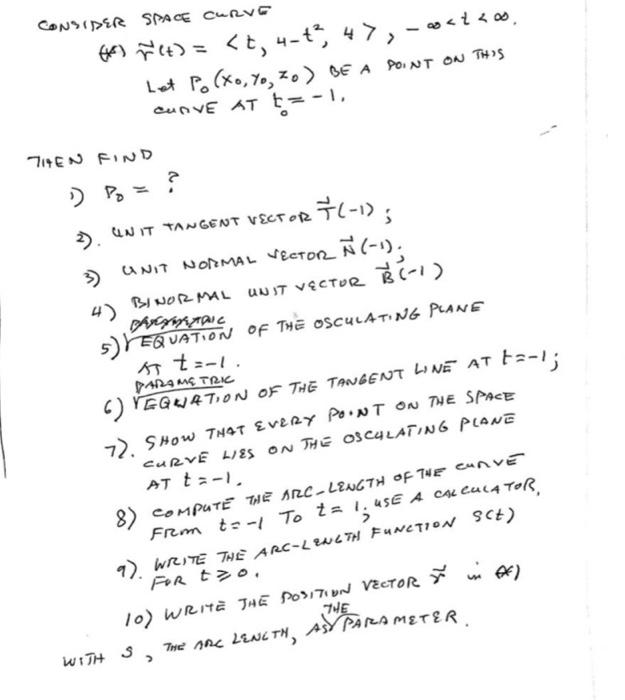 CONSIDER SPACE CURVE
(*) r⃗(t) = <t, 4-t², 4>, -∞<t<∞.
Let P₀(x₀, y₀, z₀) BE A POINT ON THIS
CURVE AT t₀=-1.
THEN FIND
1) P₀ = ?
2). UNIT TANGENT VECTOR T⃗(-1);
3) UNIT NORMAL VECTOR N⃗(-1);
4) BINORMAL UNIT VECTOR B⃗(-1)
5) EQUATION OF THE OSCULATING PLANE
AT t=-1.
PARAMETRIC
6) EQUATION OF THE TANGENT LINE AT t=-1;
7). SHOW THAT EVERY POINT ON THE SPACE
CURVE LIES ON THE OSCULATING PLANE
AT t=-1.
8) COMPUTE THE ARC-LENGTH OF THE CURVE
FROM t=-1 TO t=1; USE A CALCULATOR,
9). WRITE THE ARC-LENGTH FUNCTION S(t)
FOR t≥0.
10) WRITE THE POSITION VECTOR r⃗ in (*)
THE
WITH S, THE ARC LENGTH, AS PARAMETER.